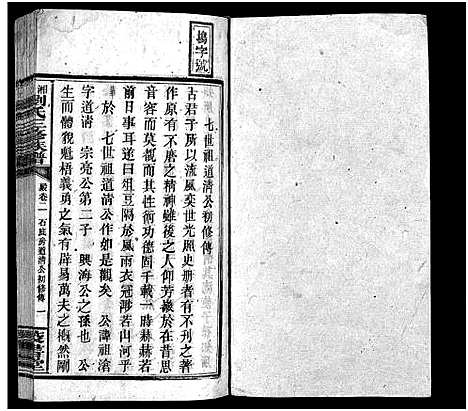 揚字號
七世祖道清公初修傳
古君子所以流風奕世光照史册者有不刊之著
作原有不磨之精神雖後之人仰芳徽於在昔思
音容而莫覩而其性術功德固千載一時赫赫若
前日事耳遂曰俎豆隔於風雨衣冠渺若山河乎
於七世祖道清公作如是觀矣 公諱祖滄
字道清 宗亮公第二子 興海公之孫也 公
生而體猊魁梧義勇之氣有辟易萬夫之槪然剛
湘劉氏三修族譜
殿卷二 石庭房道清公初修傳 一